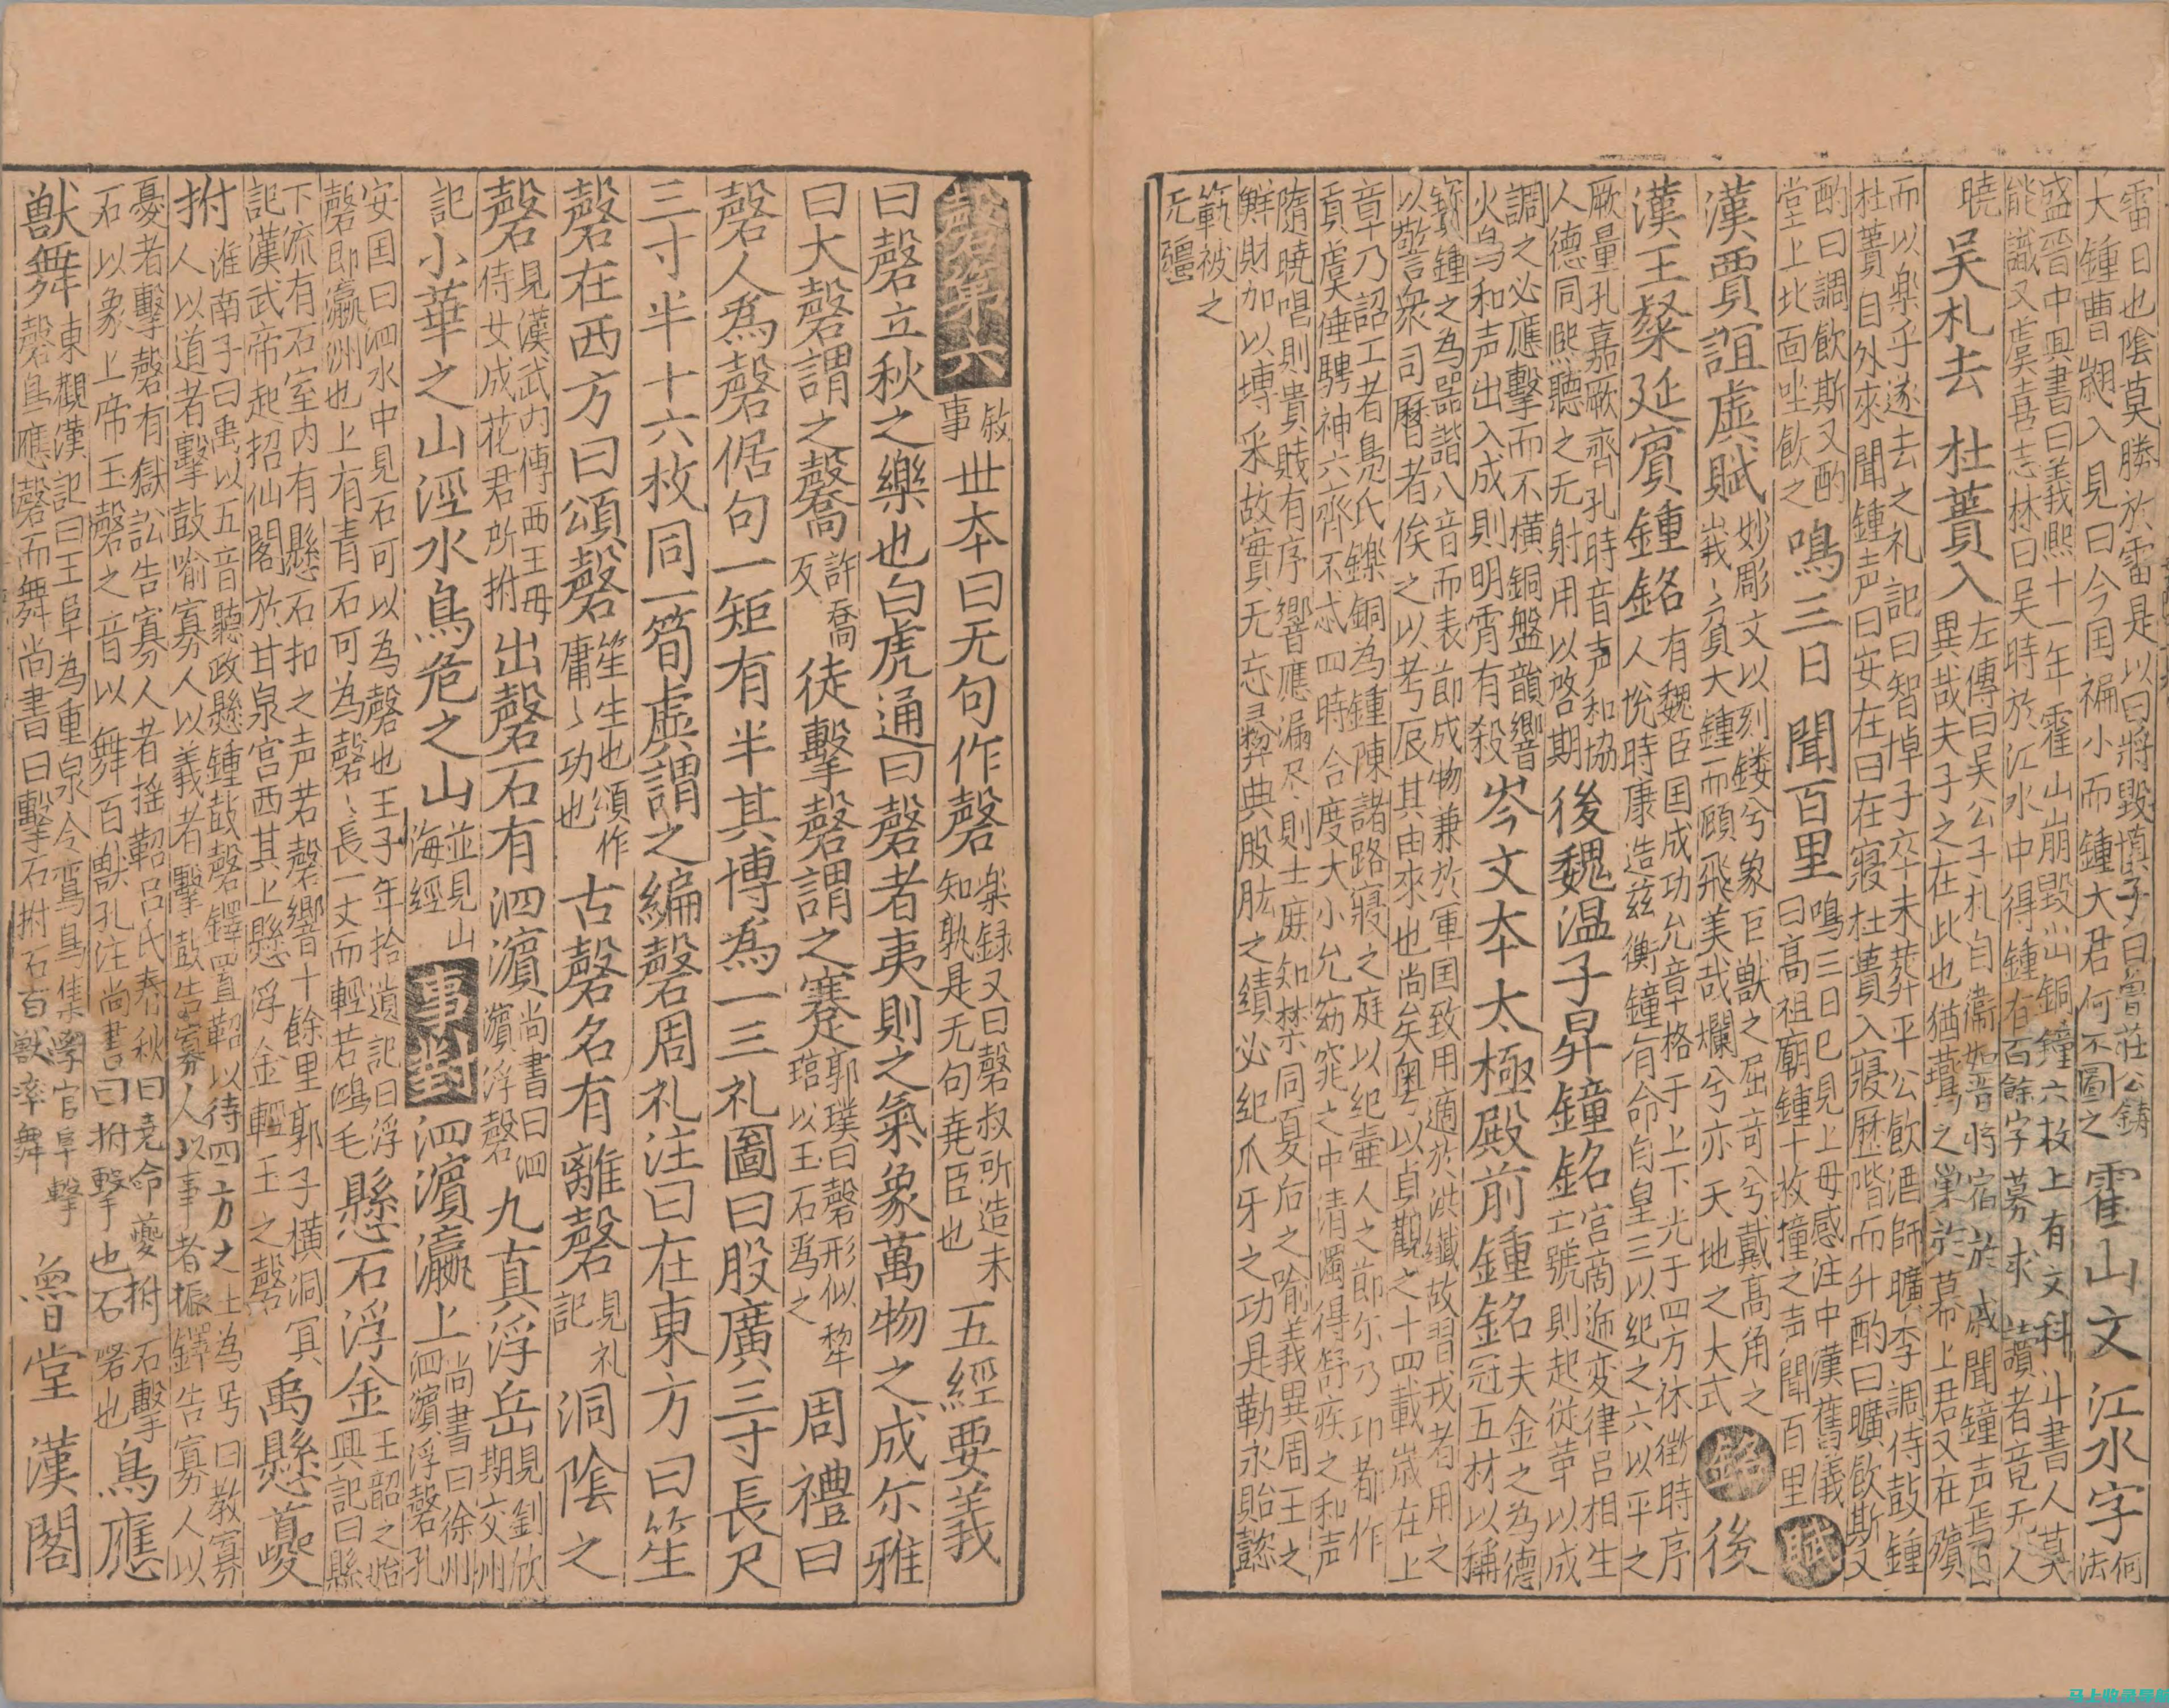 雷日也陰莫勝於雷是以曰將毀慎子曰魯莊公鑄
大鍾曹翽入見曰今囯褊小而鍾大君何不圖之
霍山文 江水字
何法
盛晋中興書曰義熈十一年霍山崩毀山銅鐘六枚上有文科斗書人莫
能識又虞喜志林曰吴時於江水中得鍾有百餘字募求讀者竟无人
曉
吴札去 杜蕢入
左傳曰吴公子札自衞如晋將宿於戚聞鐘声焉曰
異哉夫子之在此也猶鷰之巢於幕上君又在殯
而以樂乎遂去之礼記曰智悼子卒未葬平公飲酒師曠李調侍鼓鍾
杜蕢自外來聞鍾声曰安在曰在寢杜蕢入寢歷階而升酌曰曠飲斯又
酌曰調飲斯又酌
堂上北面坐飲之
鳴三日 聞百里
鳴三日已見上毋感注中漢舊儀
曰高祖廟鍾十枚撞之声聞百里
賦
漢賈誼虚賦
妙彫文以刻鏤兮象巨獸之屈奇兮戴高角之
峩〻負大鍾而顧飛美哉爛兮亦天地之大式
銘
後
漢王粲延賔鍾銘
有魏臣囯成功允章格于上下光于四方休徵時序
人恱時康造兹衡鐘有命自皇三以紀之六以平之
厥量孔嘉厥齊孔時音声和協
人德同熈聽之无射用以啓期
後魏温子昇鐘銘
宫啇迊変律呂相生
立號則起従革以成
調之必應擊而不横銅盤韻響
火烏和声出入成則明霄有殺
岑文本太極殿前鍾銘
夫金之為德
冠五材以稱
寳鍾之為噐諧八音而表節成物兼於軍囯致用適於洪纎故習戎者用之
以警衆司曆者俟之以考辰其由來也尚矣粤以貞觀之十四載歳在上
章乃詔工者鳧氏鑠銅為鍾陳諸路寢之庭以紀壷人之節尓乃卭都作
貢虞倕騁神六齊不忒四時合度大小允窈窕之中清濁得舒疾之和声
隨曉唱則貴賎有序響應漏尽則士庻知禁同夏后之喻義異周王之
鮮財加以塼采故實无忘彛典股肱之績必紀爪牙之功具勒永貽懿
範被之
无疆
磬第六
敘事
丗本曰无句作磬
楽録又曰磬叔所造未
知孰是无句堯臣也
五經要義
曰磬立秋之樂也白虎通曰磬者夷則之氣象萬物之成尓雅
曰大磬謂之毊
許喬
反
徒擊磬謂之寋
郭璞曰磬形似犂
琯以玉石爲之
周禮曰
磬人爲磬倨句一矩有半其博為一三礼圖曰股廣三寸長尺
三寸半十六枚同一筍虚謂之編磬周礼注曰在東方曰笙
磬在西方曰頌磬
笙生也頌作
庸〻功也
古磬名有離磬
見礼
記
洞陰之
磬
見漢武内傳西王毋
侍女成花君所拊
出磬石有泗濵
尚書曰泗
濵浮磬
九真浮岳
見劉欣
期交州
記
小華之山涇水鳥危之山
並見山
海經
事對
泗濵瀛上
尚書曰徐州
泗濵浮磬孔
安囯曰泗水中見石可以為磬也王子年拾遺記曰浮
磬即瀛洲也上有青石可為磬〻長一丈而輕若鴻毛
懸石浮金
王韶之始
興記曰縣
下流有石室内有懸石扣之声若磬響十餘里郭子横洞冥
記漢武帝起招仙閣於甘泉宫西其上懸浮金輕玉之磬
禹懸夔
拊
淮南子曰禹以五音聽政懸鍾鼓磬鐸置鞀以待四方之士為号曰教寡
人以道者擊鼓喻寡人以義者擊鼓告寡人以事者振鐸告寡人以
憂者擊磬有獄訟告寡人者揺鞀吕氏春秋曰堯命夔拊石擊
石以象上帝玉磬之音以舞百獸孔注尚書曰拊擊也石磬也
鳥應
獸舞
東觀漢記曰王阜為重泉令鸞鳥集學官阜擊
磬鳥應磬而舞尚書曰擊石拊石百獸率舞
魯堂 漢閣